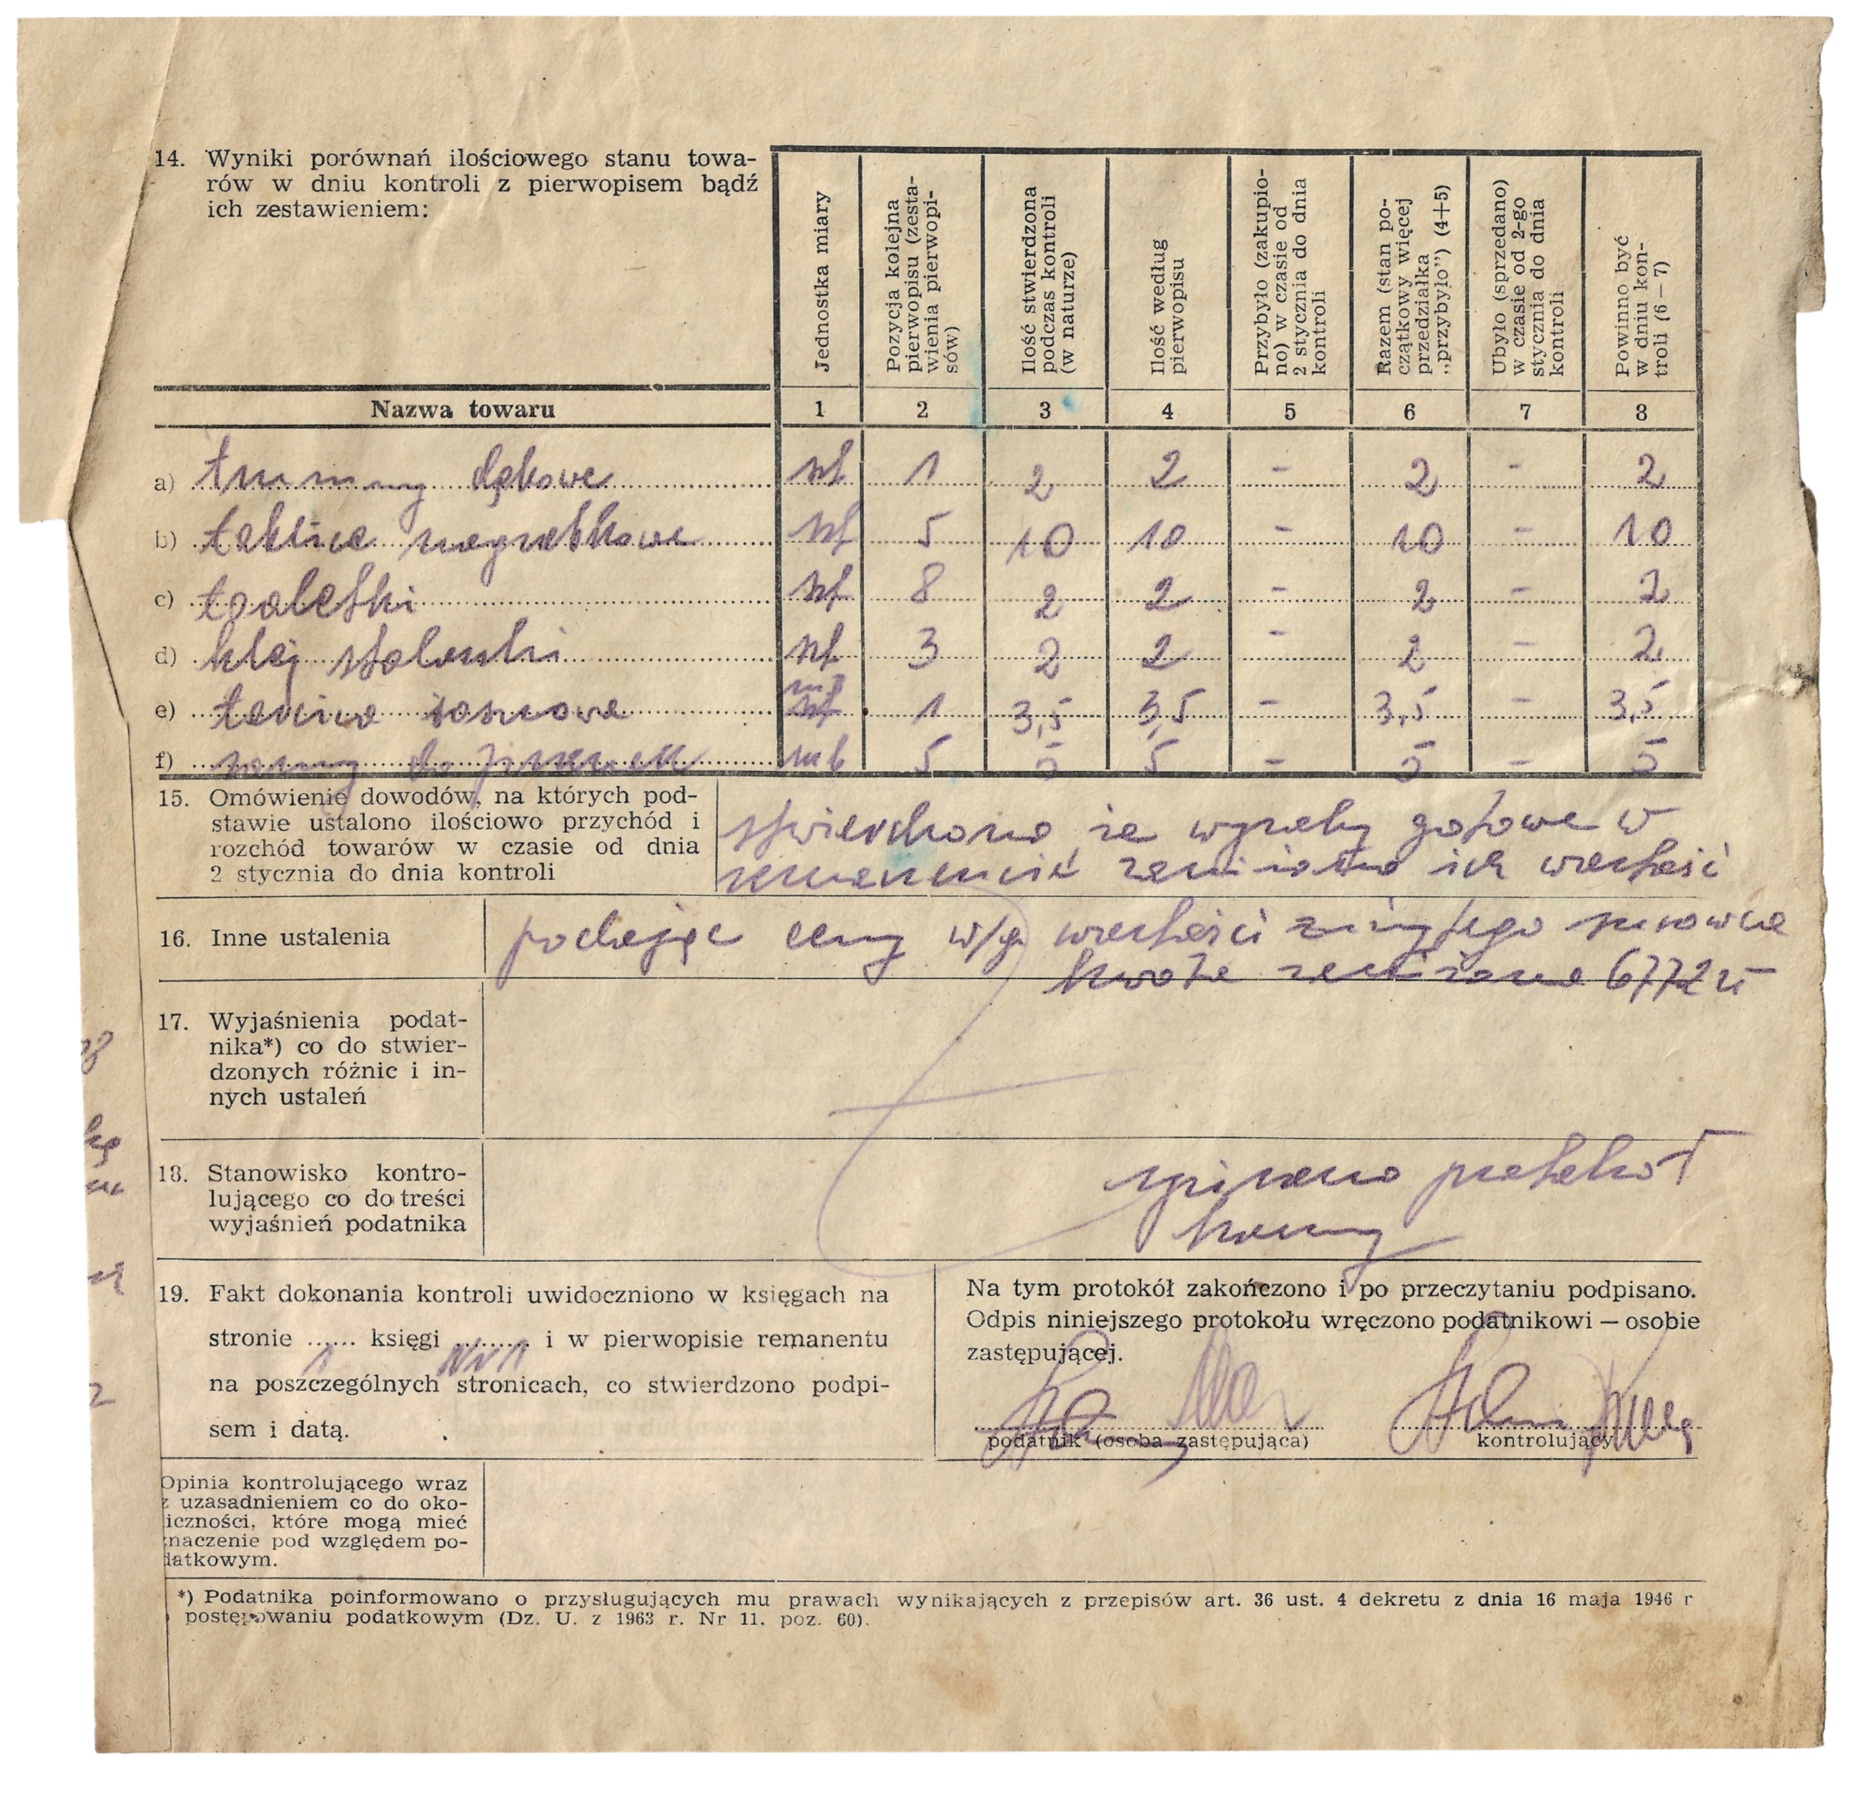 14. Wyniki porównań ilościowego stanu towa-
rów w dniu kontroli z pierwopisem bądź
ich zestawieniem:
Jednostka miary
Pozycja kolejna
pierwopisu (zesta-
wienia pierwopi-
sów)
Ilość stwierdzona
podczas kontroli
(w naturze)
Ilość według
pierwopisu
Przybyło (zakupio-
no) w czasie od
2 stycznia do dnia
kontroli
Razem (stan po-
czątkowy więcej
przedziałka
„przybyło”) (4+5)
Ubyło (sprzedano)
w czasie od 2-go
stycznia do dnia
kontroli
Powinno być
w dniu kon-
troli (6 — 7)
Nazwa towaru 1 2 3 4 5 6 7 8
a) trumny dębowe szt 1 2 2 - 2 - 2
b) tablice nagrobkowe szt 5 10 10 - 10 - 10
c) toaletki szt 8 2 2 - 2 - 2
d) klej stolarski szt 3 2 2 - 2 - 2
e) tarcica sosnowa m3 1 3,5 3,5 - 3,5 - 3,5
f) ramy do mb 5 5 5 - 5 - 5
15. Omówienie dowodów, na których pod-
stawie ustalono ilościowo przychód i
rozchód towarów w czasie od dnia
2 stycznia do dnia kontroli
stwierdzono że wyroby gotowe w
remanencie zaniżono ich wartość
16. Inne ustalenia
podając ceny w/g wartości zużytego surowca
kwota zaniżona 6772 zł
17. Wyjaśnienia podat-
nika*) co do stwier-
dzonych różnic i in-
nych ustaleń
18. Stanowisko kontro-
lującego co do treści
wyjaśnień podatnika
spisano protokół
karny
19. Fakt dokonania kontroli uwidoczniono w księgach na
stronie ...... księgi ......... i w pierwopisie remanentu
1 Nr 1
na poszczególnych stronicach, co stwierdzono podpi-
sem i datą.
Na tym protokół zakończono i po przeczytaniu podpisano.
Odpis niniejszego protokołu wręczono podatnikowi — osobie
zastępującej.
podatnik (osoba zastępująca)
kontrolujący
Opinia kontrolującego wraz
z uzasadnieniem co do oko-
iczności, które mogą mieć
znaczenie pod względem po-
datkowym.
*) Podatnika poinformowano o przysługujących mu prawach wynikających z przepisów art. 36 ust. 4 dekretu z dnia 16 maja 1946 r
postępowaniu podatkowym (Dz. U. z 1963 r. Nr 11. poz. 60).